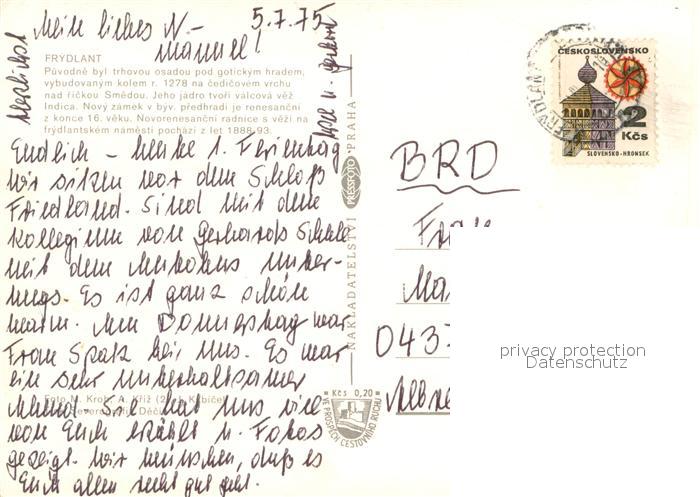 Mein liebes N- 5.7.75
Mammel!
FRÝDLANT
Původně byl trhovou osadou pod gotickým hradem,
vybudovaným kolem r. 1278 na čedičovém vrchu
nad říčkou Smědou. Jeho jádro tvoří válcová věž
Indica. Nový zámek v býv. předhradí je renesanční
z konce 16. věku. Novorenesanční radnice s věží na
frýdlantském náměstí pochází z let 1888-93.
Endlich - heute 1. Ferientag
wir sitzen vor dem Schloß
Friedland. Sind mit dem
Kollegium von Gerhards Schule
mit dem Autobus unter-
wegs. Es ist ganz schön
warm. Am Donnerstag war
Frau Spatz bei uns. Es war
ein sehr unterhaltsamer
Abend. Sie hat uns viel
von Euch erzählt u. Fotos
gezeigt. Wir wünschen, daß es
Euch allen recht gut geht.
Herzlichst
Foto M. Krob, A. Kříž
Děčín
NAKLADATELSTVÍ PRESSFOTO PRAHA
Kčs 0,20
VE PROSPĚCH CESTOVNÍHO RUCHU
ČESKOSLOVENSKO
2
Kčs
SLOVENSKO-HRONSEK
BRD
043
privacy protection
Datenschutz